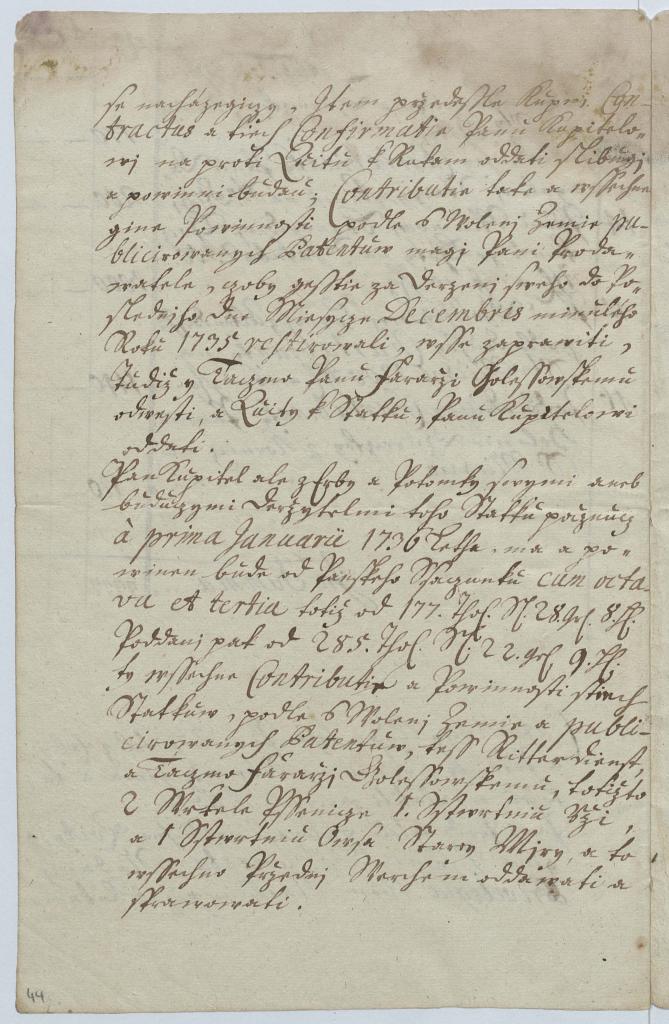 se nacházegiczy, Item przedessle Kupní Con-
tractus a tiech Confirmatie Panu Kupitelo-
wj na proti Quitu k Rukam oddati slibugj
a powinni budau; Contributie take a wssechne
gine Powinnosti podle S Wolenj Zemie pu-
blicirowanych Patentuw magj Pani Proda-
watele, czoby gesstie za Derzenj sweho do Po-
slednjho Dne Miesycze Decembris minuleho
Roku 1735 restirowali, wsse zaprawiti,
Tudiž y Taczmo Panu Fararzi Golessowskemu
odwesti, a Quity k Statku, Panu Kupitelowi
oddati.
Pan Kupitel ale z Erby a Potomky swymi aneb
buduczymi Derzytelmi toho Statku pocznucz
à prima Januarii 1736 Letha, ma a po-
winen bude od Panskeho Ssaczunku cum octa-
va et tertia totiz od 177. Thol. Sl. 28. gl. 8. hl.
Poddanj pak od 285. Thol. Sl. 22. gl. 9. hl.
ty wssechne Contributie a Powinnosti stiech
Statkuw, podle S Wolenj Zemie a publi-
cirowanych Patentuw, tess Ritterdienst,
a Taczmo Fararzj Golessowskemu, totizto
2 Wrtele Pssenicze 1. Sstwrtniu Rži,
a 1 Sstwrtniu Owsa Starey Mjry, a to
wssechno Przednj Werchem oddáwati a
sprawowati.
44